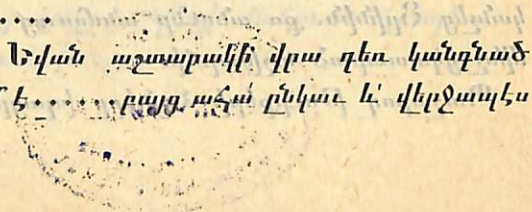 ....
Նվան աշտարակի վրա դեռ կանգնած
է......բայց ահա ընկաւ և վերջապէս